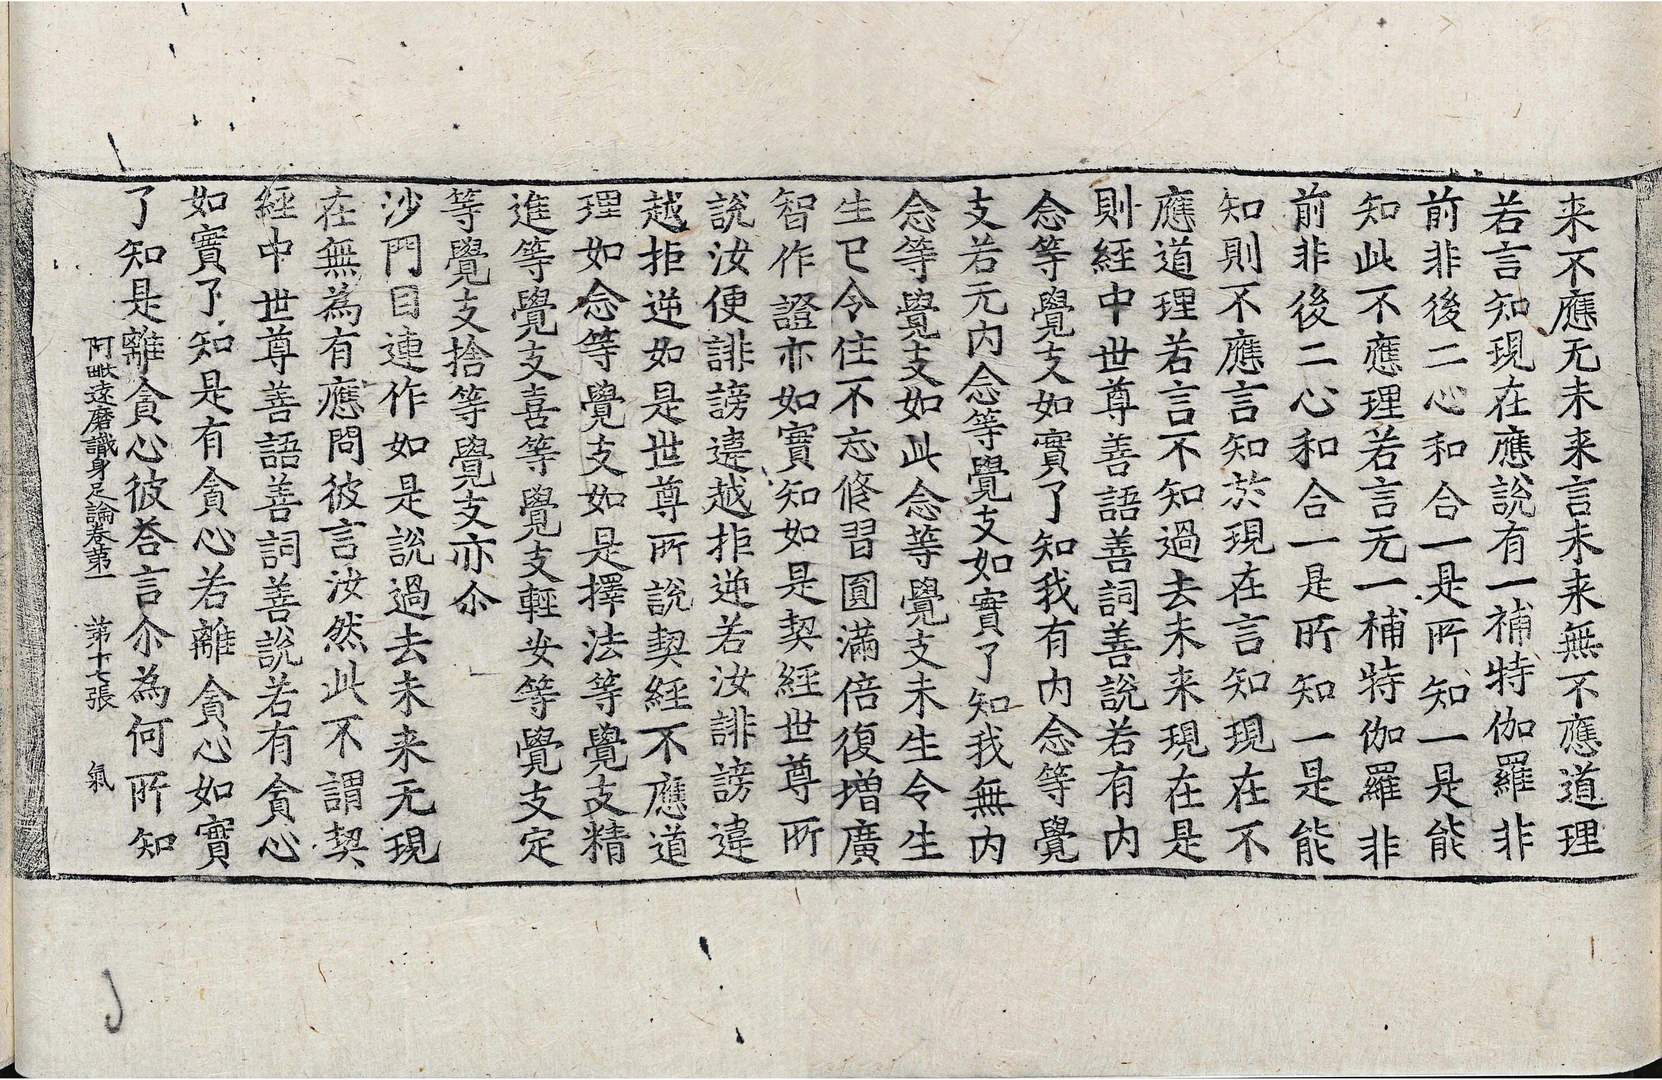 来不應无未来言未来無不應道理
若言知現在應說有一補特伽羅非
前非後二心和合一是所知一是能
知此不應理若言无一補特伽羅非
前非後二心和合一是所知一是能
知則不應言知於現在言知現在不
應道理若言不知過去未来現在是
則經中世尊善語善詞善說若有内
念等覺支如實了知我有内念等覺
支若无内念等覺支如實了知我無内
念等覺支如此念等覺支未生令生
生已令住不忘修習圓滿倍復增廣
智作證亦如實知如是契經世尊所
說汝便誹謗違越拒逆若汝誹謗違
越拒逆如是世尊所說契經不應道
理如念等覺支如是擇法等覺支精
進等覺支喜等覺支輕安等覺支定
等覺支捨等覺支亦尒
沙門目連作如是說過去未来无現
在無為有應問彼言汝然此不謂契
經中世尊善語善詞善說若有貪心
如實了知是有貪心若離貪心如實
了知是離貪心彼荅言尒為何所知
阿毗達磨識身足論卷第一　第十七張　氣